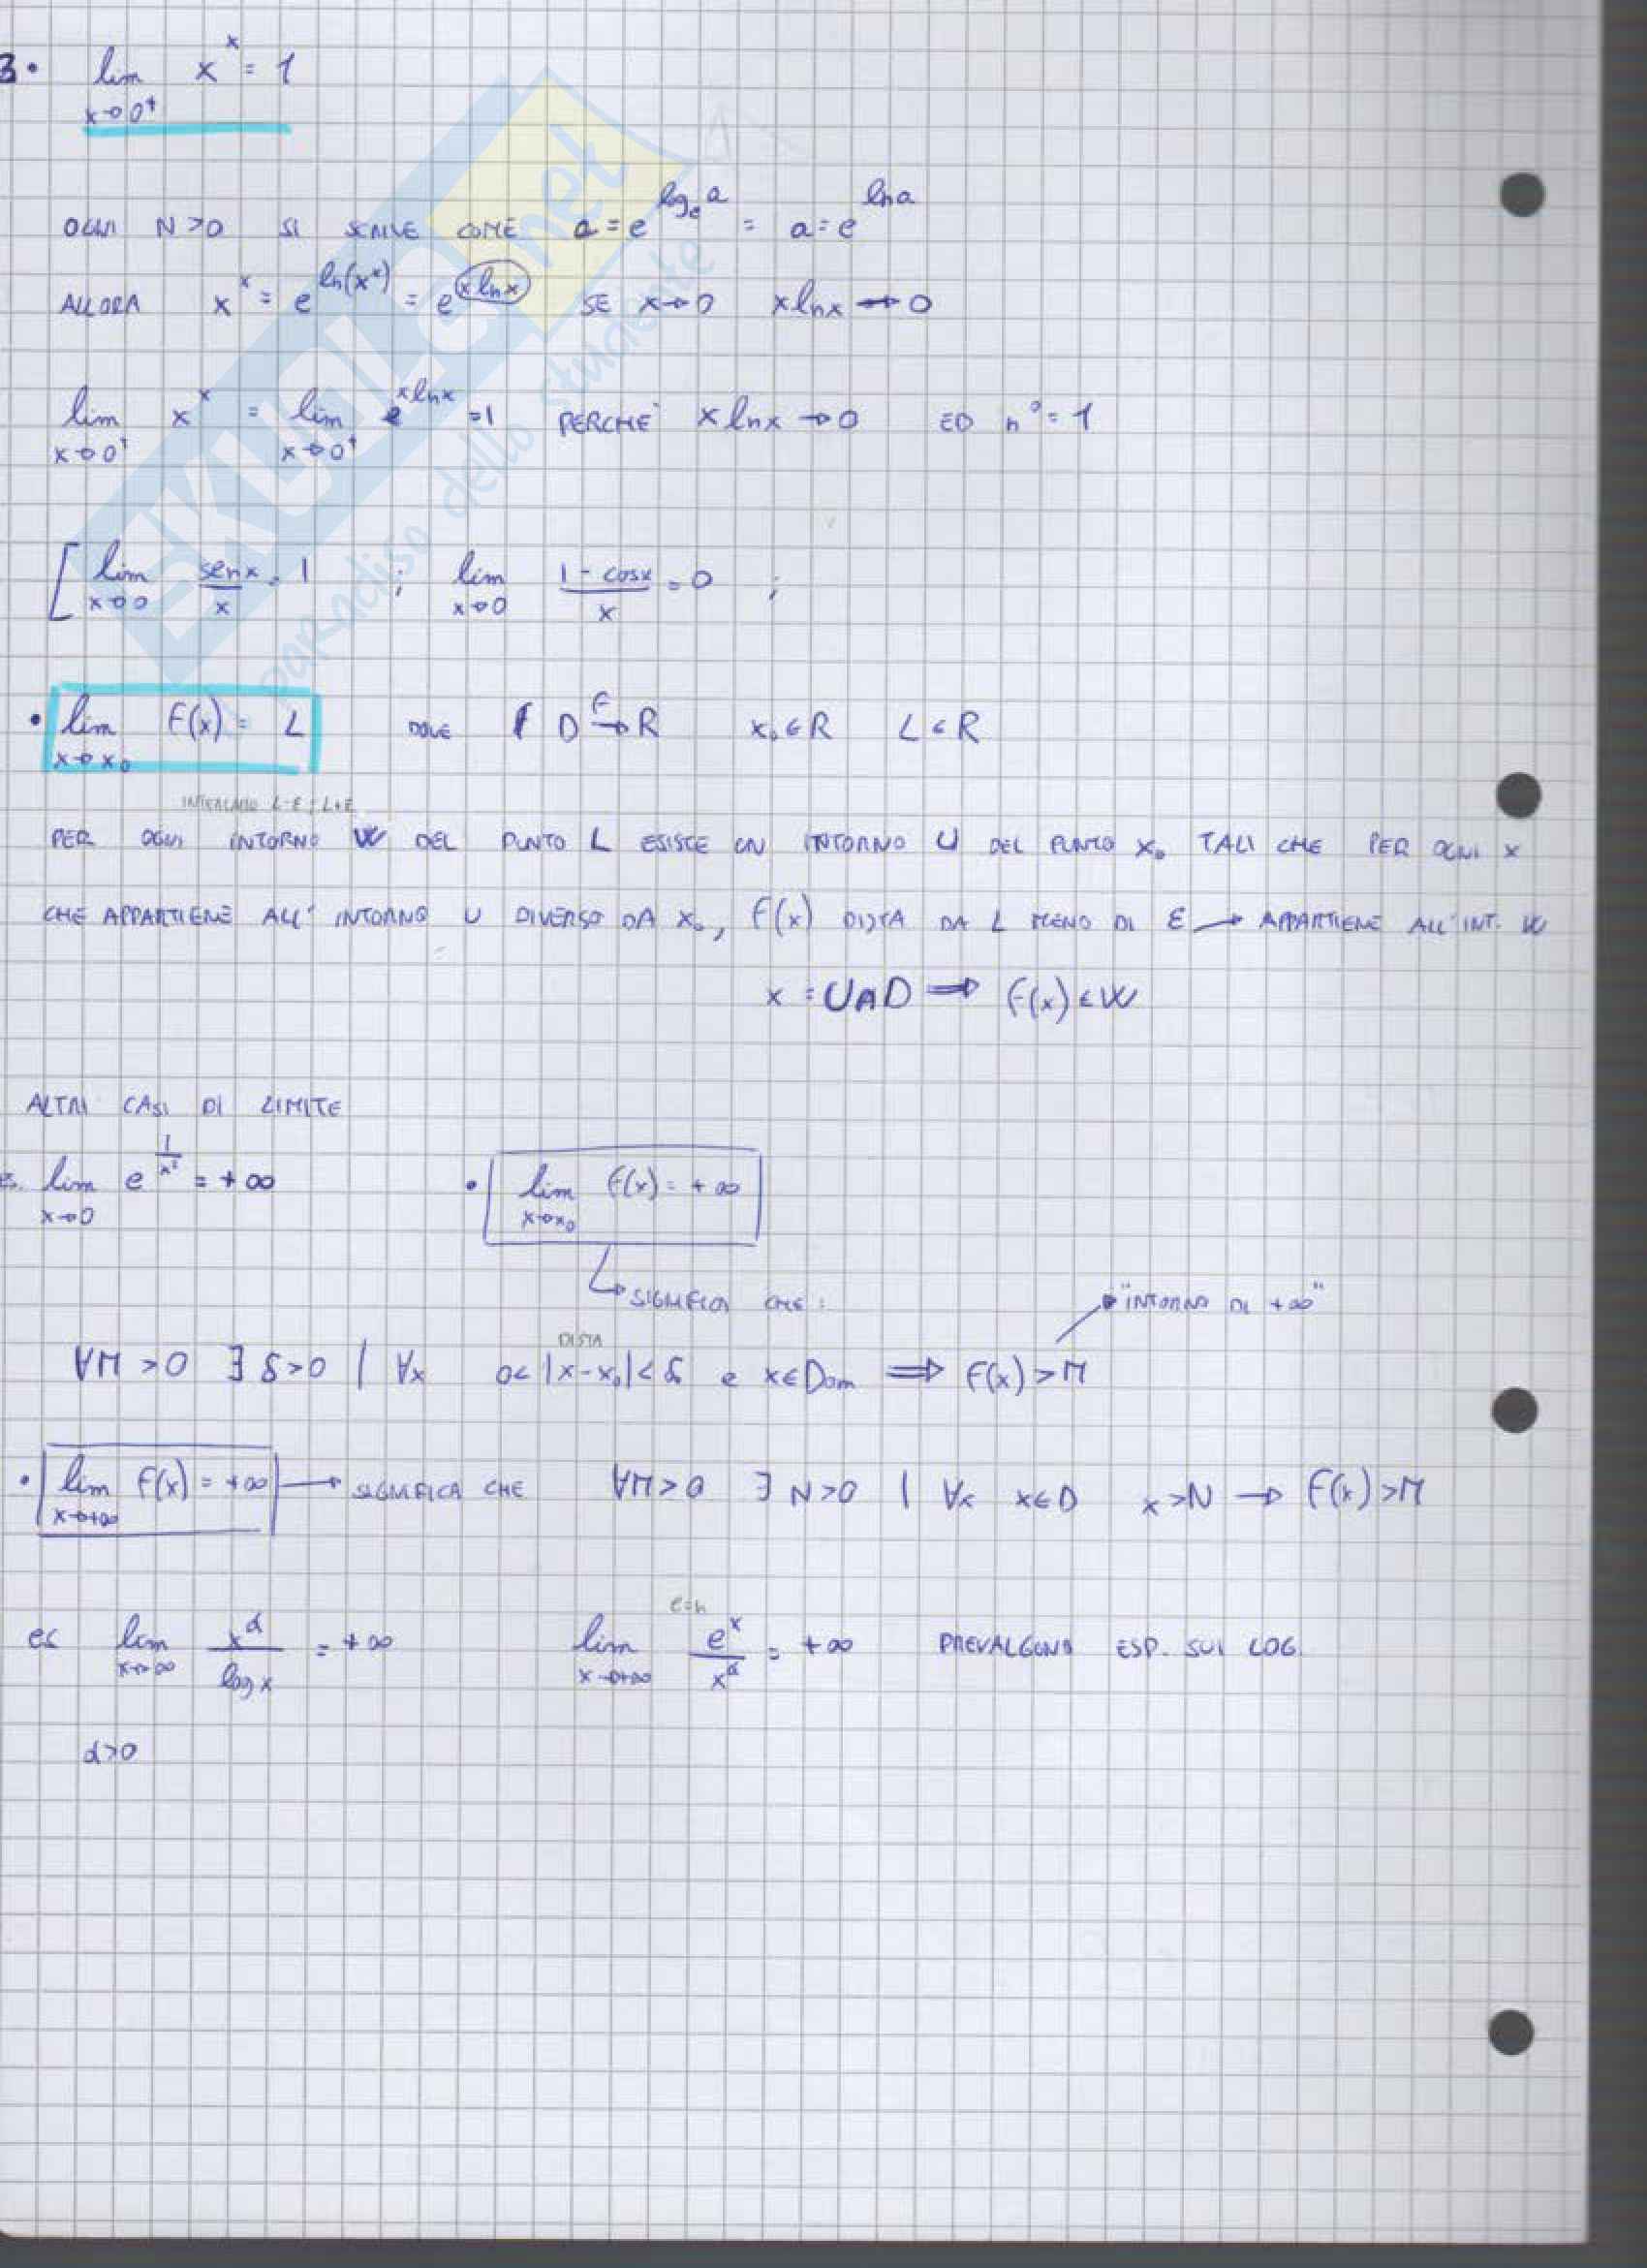 3. lim x→0⁺ xˣ = 1
OGNI N>0 SI SCRIVE COME a = e^(logₑ a) = a = e^(ln a)
ALLORA xˣ = e^(ln(xˣ)) = e^(x ln x) SE x→0 x ln x → 0
lim x→0⁺ xˣ = lim x→0⁺ e^(x ln x) = 1 PERCHE' x ln x → 0 ED n⁰ = 1
[ lim x→0 sen x / x = 1 ; lim x→0 1 - cos x / x = 0 ;
• lim x→x₀ F(x) = L DOVE D F→ R x₀ ∈ R L ∈ R
INTERVALLO L-E ; L+E
PER OGNI INTORNO W DEL PUNTO L ESISTE UN INTORNO U DEL PUNTO x₀ TALI CHE PER OGNI x
CHE APPARTIENE ALL' INTORNO U DIVERSO DA x₀, F(x) DISTA DA L MENO DI ε → APPARTIENE ALL'INT. W
x = U∩D ⇒ F(x) ∈ W
ALTRI CASI DI LIMITE
es. lim x→0 e^(1/x²) = +∞ • lim x→x₀ F(x) = +∞
↳ SIGNIFICA CHE :
"INTORNO DI +∞"
DISTA
∀M >0 ∃ δ>0 | ∀x 0< |x-x₀| < δ e x∈Dom ⇒ F(x) > M
• lim x→+∞ F(x) = +∞ → SIGNIFICA CHE ∀M>0 ∃ N>0 | ∀x x∈D x>N → F(x) >M
e=n
es lim x→∞ x^α / log x = +∞ lim x→+∞ eˣ / x^α = +∞ PREVALGONO ESP. SUI LOG.
α>0
SKUOLA.net
paradiso dello studente